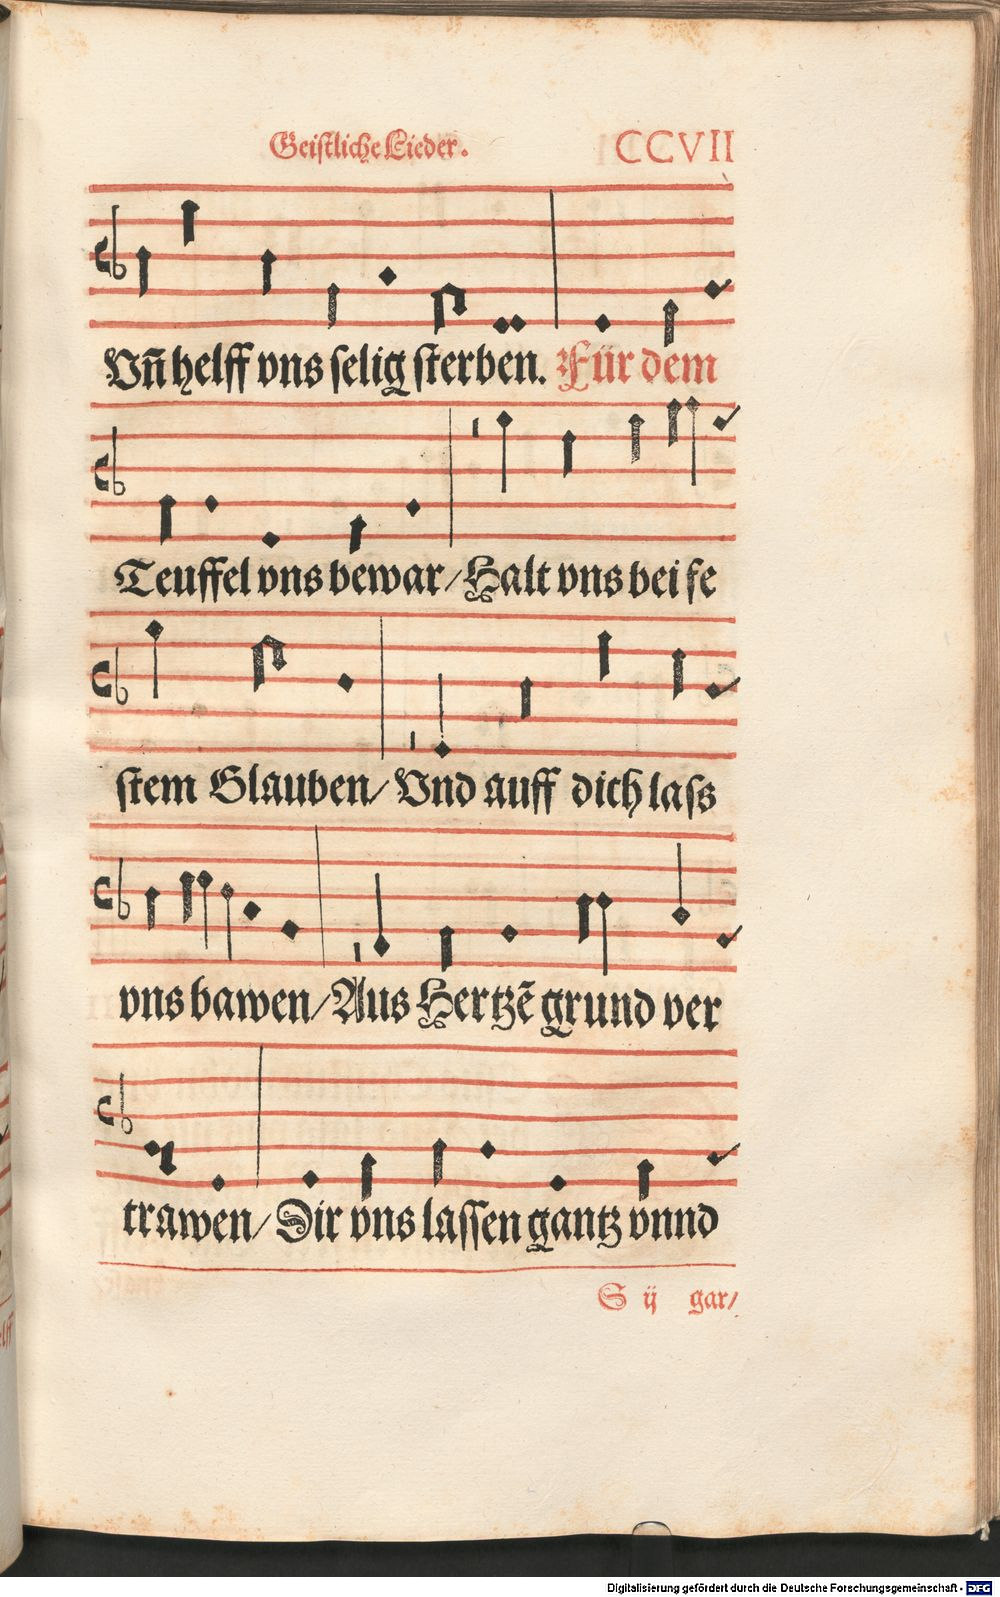 Geiſtliche Lieder. CCVII
Vñ helff vns ſelig ſterben. Für dem
Teuffel vns bewar/ Halt vns bei fe
ſtem Glauben/ Vnd auff dich laſs
vns bawen/ Aus Hertzẽ grund ver
trawen/ Dir vns laſſen gantz vnnd
S ij gar/
Digitalisierung gefördert durch die Deutsche Forschungsgemeinschaft - DFG